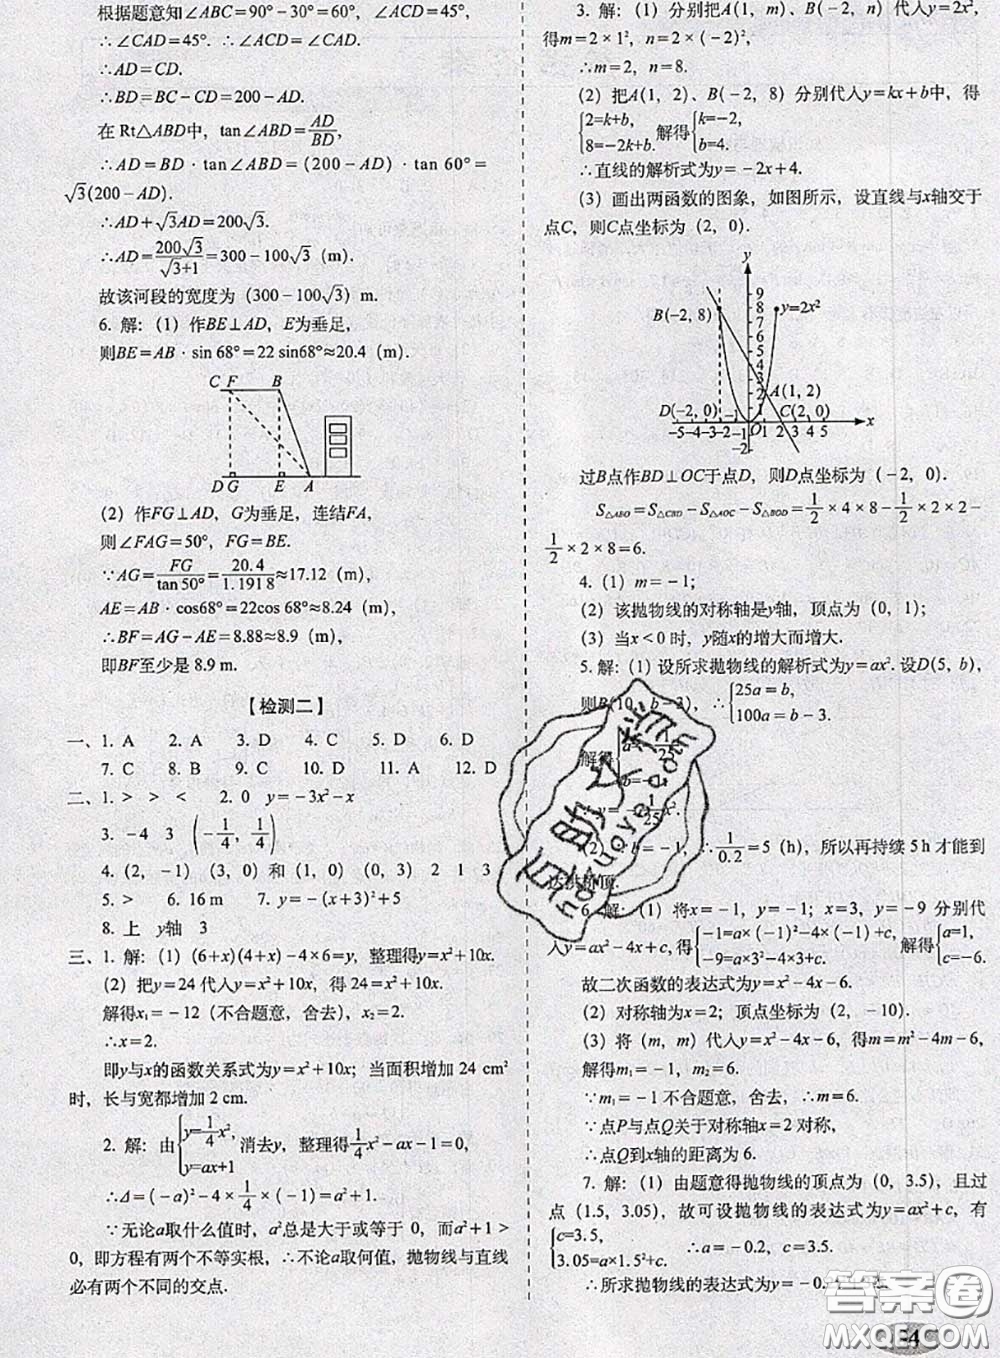 根据题意知∠ABC=90°-30°=60°,∠CAD=45°,
∴∠CAD=45°. ∴∠ACD=∠CAD=45°.
∴AD=CD.
∴BD=BC-CD=200-AD.
在 Rt△ABD中, tan∠ABD=AD/BD,
∴AD=BD·tan∠ABD=(200-AD)·tan 60°=
√3(200-AD).
∴AD+√3AD=200√3.
∴AD=200√3/(√3+1)=300-100√3 (m).
故该河段的宽度为(300-100√3) m.
6. 解:(1) 作BE⊥AD, E为垂足,
则BE=AB·sin 68°=22 sin68°≈20.4 (m).
C F B
D G E A
(2) 作FG⊥AD, G为垂足, 连结FA,
则∠FAG=50°, FG=BE.
∵AG=FG/tan50°=20.4/1.1918≈17.12 (m),
AE=AB·cos68°=22cos 68°≈8.24 (m),
∴BF=AG-AE=8.88≈8.9 (m),
即BF至少是 8.9 m.
【检测二】
一、1. A 2. A 3. D 4. C 5. D 6. D
7. C 8. B 9. C 10. D 11. A 12. D
二、1. > > < 2. 0 y=-3x²-x
3. -4 3 (-1/4, 1/4)
4. (2, -1) (3, 0) 和 (1, 0) (0, 3) 2 1 3
5. > 6. 16 m 7. y=-(x+3)²+5
8. 上 y轴 3
三、1. 解:(1) (6+x)(4+x)-4×6=y, 整理得y=x²+10x.
(2) 把y=24代入y=x²+10x, 得24=x²+10x.
解得x₁=-12 (不合题意, 舍去), x₂=2.
∴x=2.
即y与x的函数关系式为y=x²+10x; 当面积增加 24 cm²
时, 长与宽都增加 2 cm.
2. 解: 由{y=1/4x², y=ax+1 消去y, 整理得1/4x²-ax-1=0,
∴Δ=(-a)²-4×1/4×(-1)=a²+1.
∵无论a取什么值时, a²总是大于或等于 0, 而a²+1>
0, 即方程有两个不等实根, ∴不论a取何值, 抛物线与直线
必有两个不同的交点.
3. 解:(1) 分别把A(1, m)、B(-2, n) 代入y=2x²,
得m=2×1², n=2×(-2)²,
∴m=2, n=8.
(2) 把A(1, 2)、B(-2, 8) 分别代入y=kx+b中, 得
{2=k+b, 8=-2k+b. 解得{k=-2, b=4.
∴直线的解析式为y=-2x+4.
(3) 画出两函数的图象, 如图所示, 设直线与x轴交于
点C, 则C点坐标为 (2, 0).
y
9
B(-2, 8) 8 y=2x²
7
6
5
4
3
2 A(1, 2)
D(-2, 0) 1 C(2, 0) x
-5-4-3-2-1 O 1 2 3 4 5
-1
-2
过B点作BD⊥OC于点D, 则D点坐标为 (-2, 0).
S△ABO=S△CBD-S△AOC-S△BOD=1/2×4×8-1/2×2×2-
1/2×2×8=6.
4. (1) m=-1;
(2) 该抛物线的对称轴是y轴, 顶点为 (0, 1);
(3) 当x<0 时, y随x的增大而增大.
5. 解:(1) 设所求抛物线的解析式为y=ax². 设D(5, b),
则B(10, b-3), ∴{25a=b, 100a=b-3.
解得{a=-1/25, b=-1.
∴y=-1/25x².
(2) b=-1, ∴1/0.2=5 (h), 所以再持续 5 h 才能到
达拱桥顶.
6. 解:(1) 将x=-1, y=-1; x=3, y=-9 分别代
入y=ax²-4x+c, 得{-1=a×(-1)²-4×(-1)+c, -9=a×3²-4×3+c. 解得{a=1, c=-6.
故二次函数的表达式为y=x²-4x-6.
(2) 对称轴为x=2; 顶点坐标为 (2, -10).
(3) 将 (m, m) 代入y=x²-4x-6, 得m=m²-4m-6,
解得m₁=-1, m₂=6.
∵m₁=-1 不合题意, 舍去, ∴m=6.
∵点P与点Q关于对称轴x=2 对称,
∴点Q到x轴的距离为 6.
7. 解:(1) 由题意得抛物线的顶点为 (0, 3.5), 且过
点 (1.5, 3.05), 故可设抛物线的表达式为y=ax²+c, 有
{c=3.5, 3.05=a×1.5²+c. ∴a=-0.2, c=3.5.
∴所求抛物线的表达式为y=-0.2
答案圈
MXQE.COM